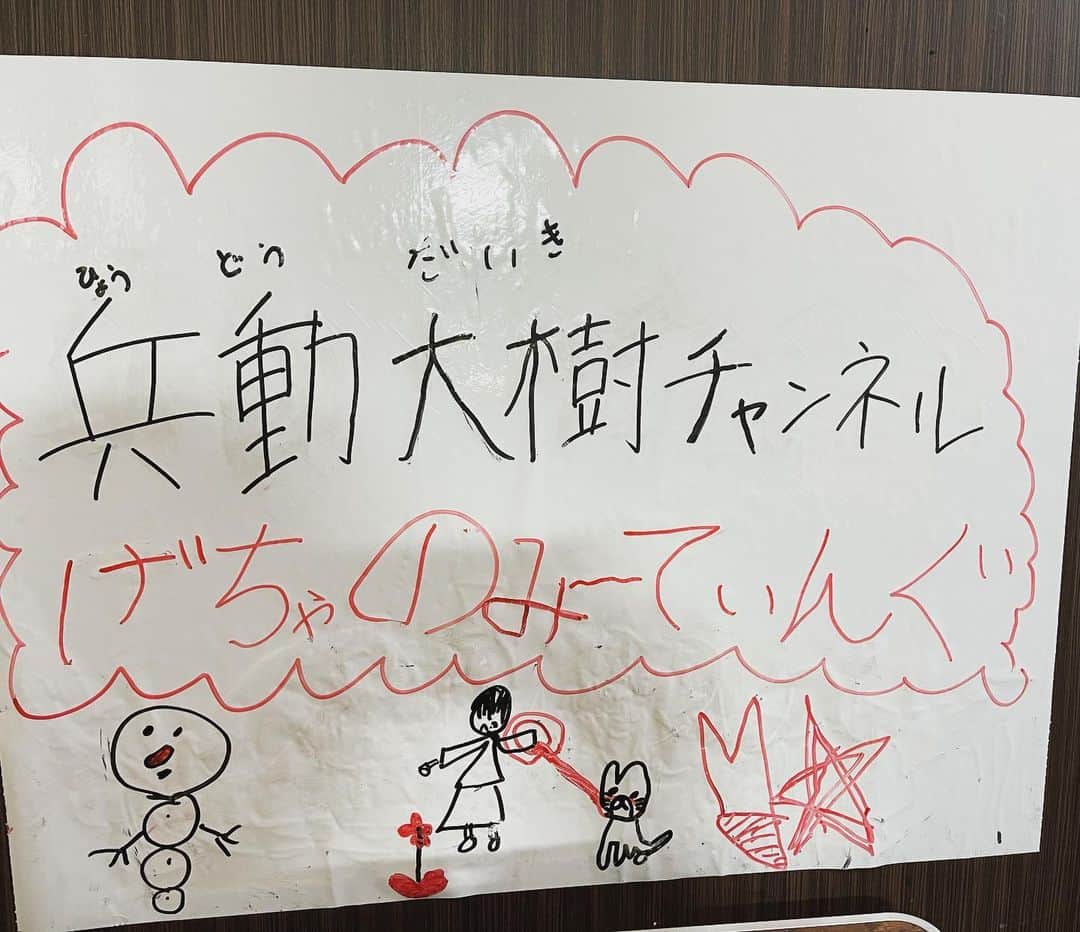 ひょう どう だいき
兵動大樹チャンネル
げちゃのみーてぃんぐ